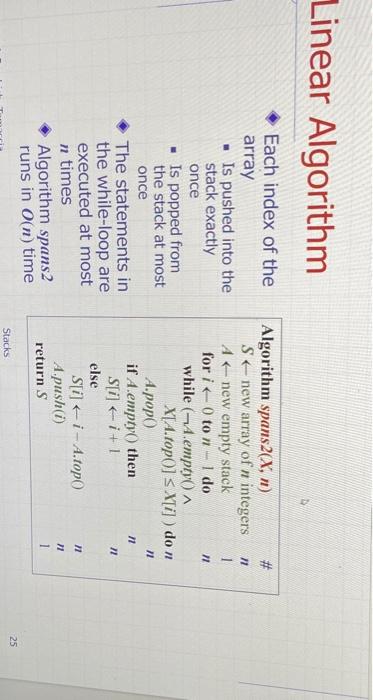 Linear Algorithm
◆ Each index of the
array
▪ Is pushed into the
stack exactly
once
▪ Is popped from
the stack at most
once
◆ The statements in
the while-loop are
executed at most
n times
◆ Algorithm spans2
runs in O(n) time
Algorithm spans2(X, n) #
S ← new array of n integers n
A ← new empty stack 1
for i ← 0 to n − 1 do n
while (¬A.empty() ∧
X[A.top()] ≤ X[i] ) do n
A.pop() n
if A.empty() then n
S[i] ← i + 1 n
else
S[i] ← i − A.top() n
A.push(i) n
return S 1
Stacks
25